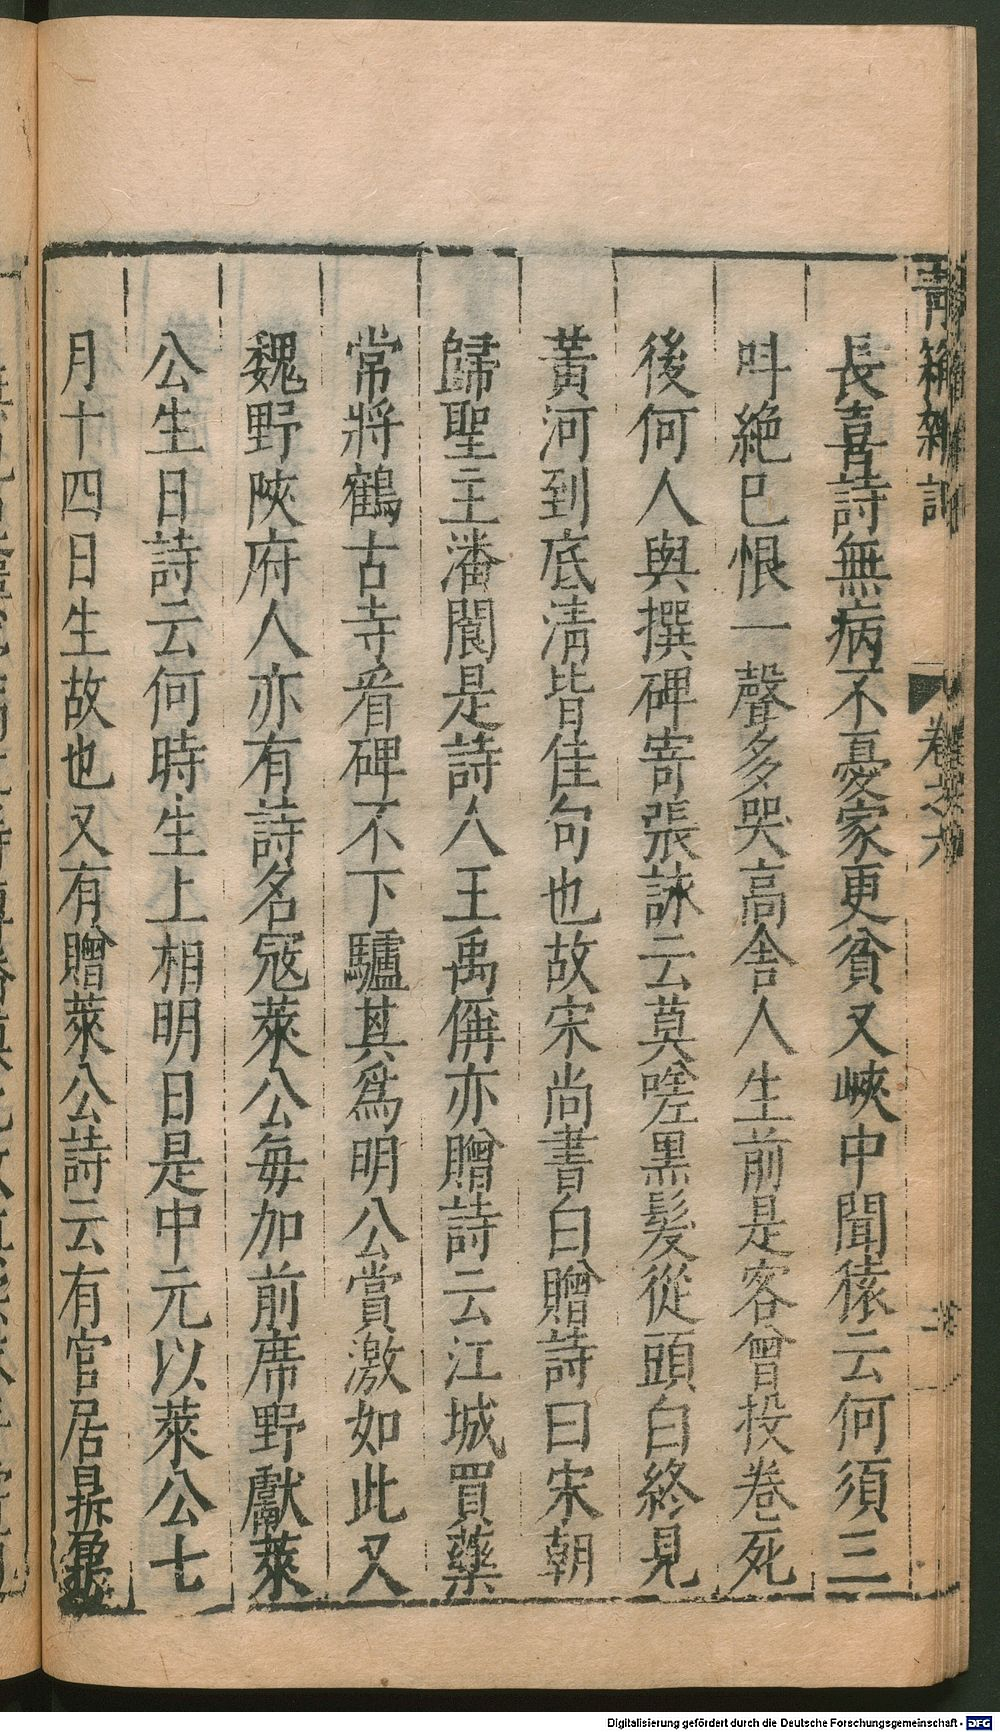 青箱雜記 卷之六 二
長喜詩無病不憂家更貧又峽中聞猿云何須三
呌絶已恨一聲多哭高舍人生前是客曾投卷死
後何人與撰碑寄張詠云莫嗟黒髮從頭白終見
黃河到底淸皆佳句也故宋尚書白贈詩曰宋朝
歸聖主潘閬是詩人王禹偁亦贈詩云江城買藥
常將鶴古寺看碑不下驢其爲明公賞激如此又
魏野陜府人亦有詩名寇萊公每加前席野獻萊
公生日詩云何時生上相明日是中元以萊公七
月十四日生故也又有贈萊公詩云有官居鼎鼐
Digitalisierung gefördert durch die Deutsche Forschungsgemeinschaft - DFG